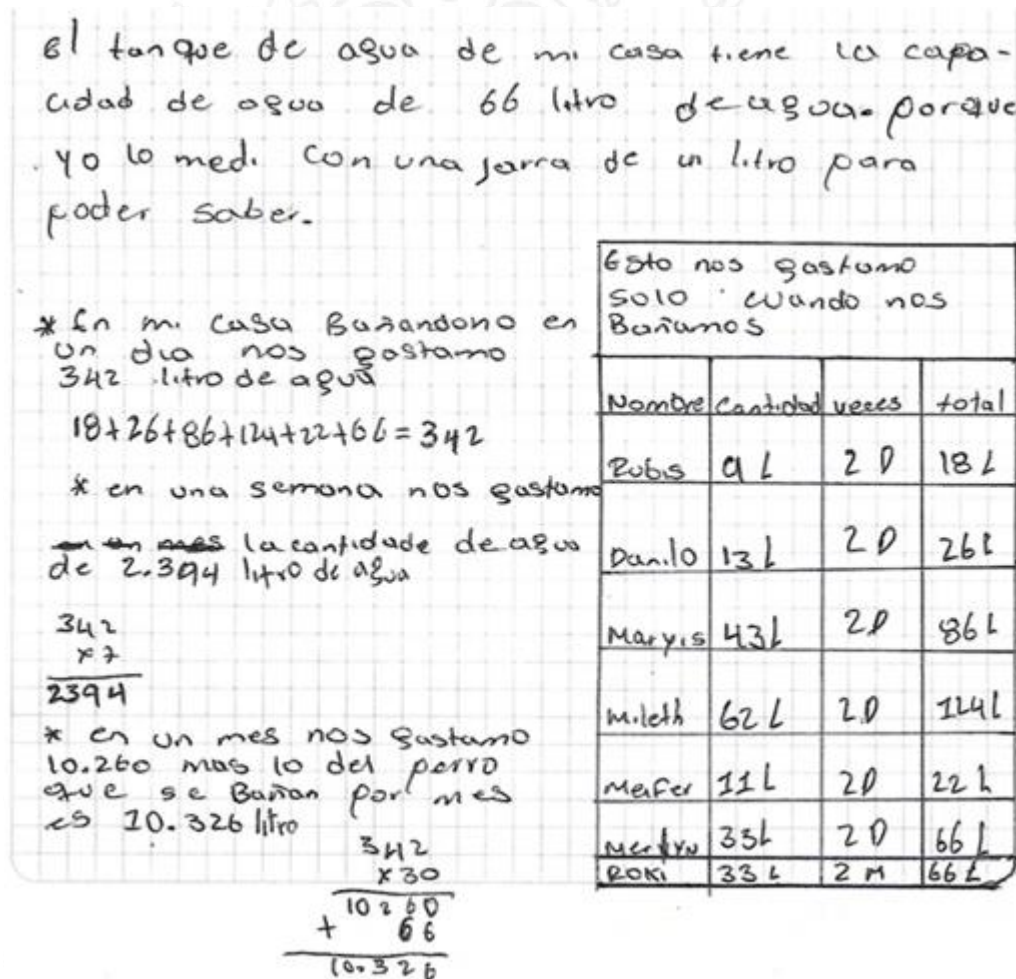 el tanque de agua de mi casa tiene la capa-
cidad de agua de 66 litro de agua. porque
yo lo medi con una jarra de un litro para
poder saber.
* En mi casa Bañandono en
un dia nos gastamo
342 litro de agua
18+26+86+124+22+66=342
* en una semana nos gastamo
la cantidade de agua
de 2.394 litro de agua
342
x7
2394
* en un mes nos gastamo
10.260 mas lo del perro
que se Bañan por mes
es 10.326 litro
342
x30
10260
+ 66
10.326
Esto nos gastamo
solo cuando nos
Bañamos
Nombre cantidad veces total
Rubis 9 L 2 D 18 L
Danilo 13 L 2 D 26 L
Maryis 43 L 2 D 86 L
Mileth 62 L 2.D 124 L
Meifer 11 L 2D 22 L
33L 2 D 66 L
ROKI 33 L 2 M 66 L